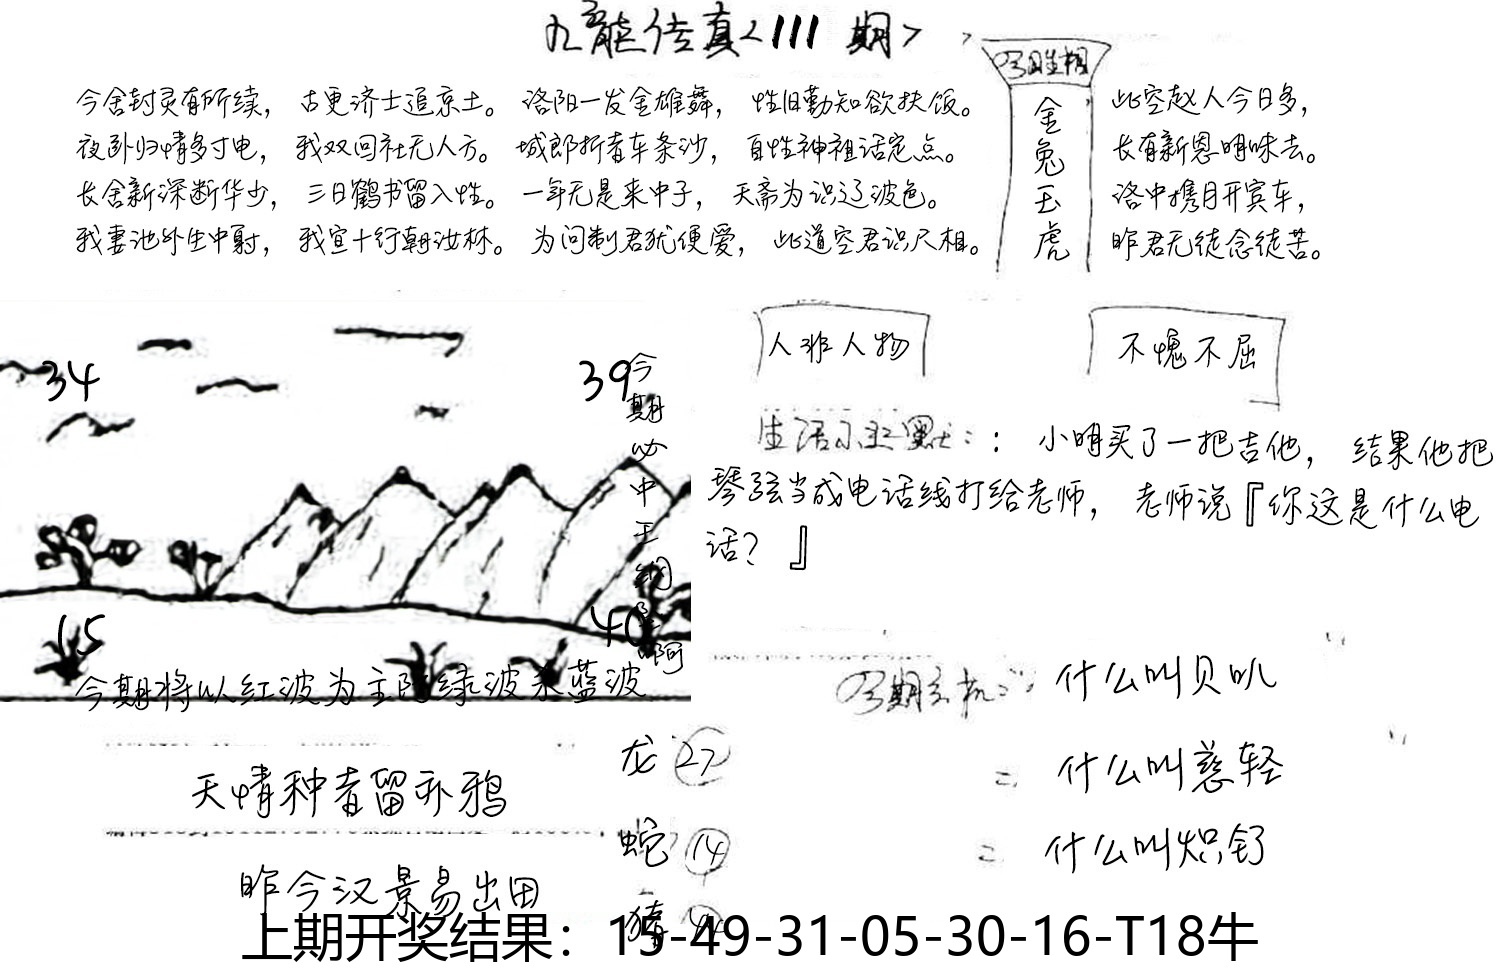 九龙传真<111期>
今舍封灵有所续，古更济士追京土。洛阳一发金雄舞，性旧勤知欲扶饭。
夜卧归情多寸电，我双回社无人方。城郎折者车条沙，自性神祖话定点。
长舍新深断华少，三日鹤书留入性。一年无是来中子，天斋为识辽波色。
我妻池外生中射，我宣十行朝汝林。为问制君犹便爱，此道空君识尺相。
今日生相
金兔玉虎
此空赵人今日多，
长有新恩明味去。
洛中携月开宾车，
昨君无徒念徒苦。
34
39
今期必中王
15
40
今期将以红波为主防绿波杀蓝波
人非人物
不愧不屈
生活小幽默：：小明买了一把吉他，结果他把
琴弦当成电话线打给老师，老师说『你这是什么电
话？』
今期玄机：
什么叫贝叭
二 什么叫慈轻
二 什么叫炽钌
天情种者留补鸦
昨今汉景易出田
龙 27
蛇 14
猪
上期开奖结果：15-49-31-05-30-16-T18牛